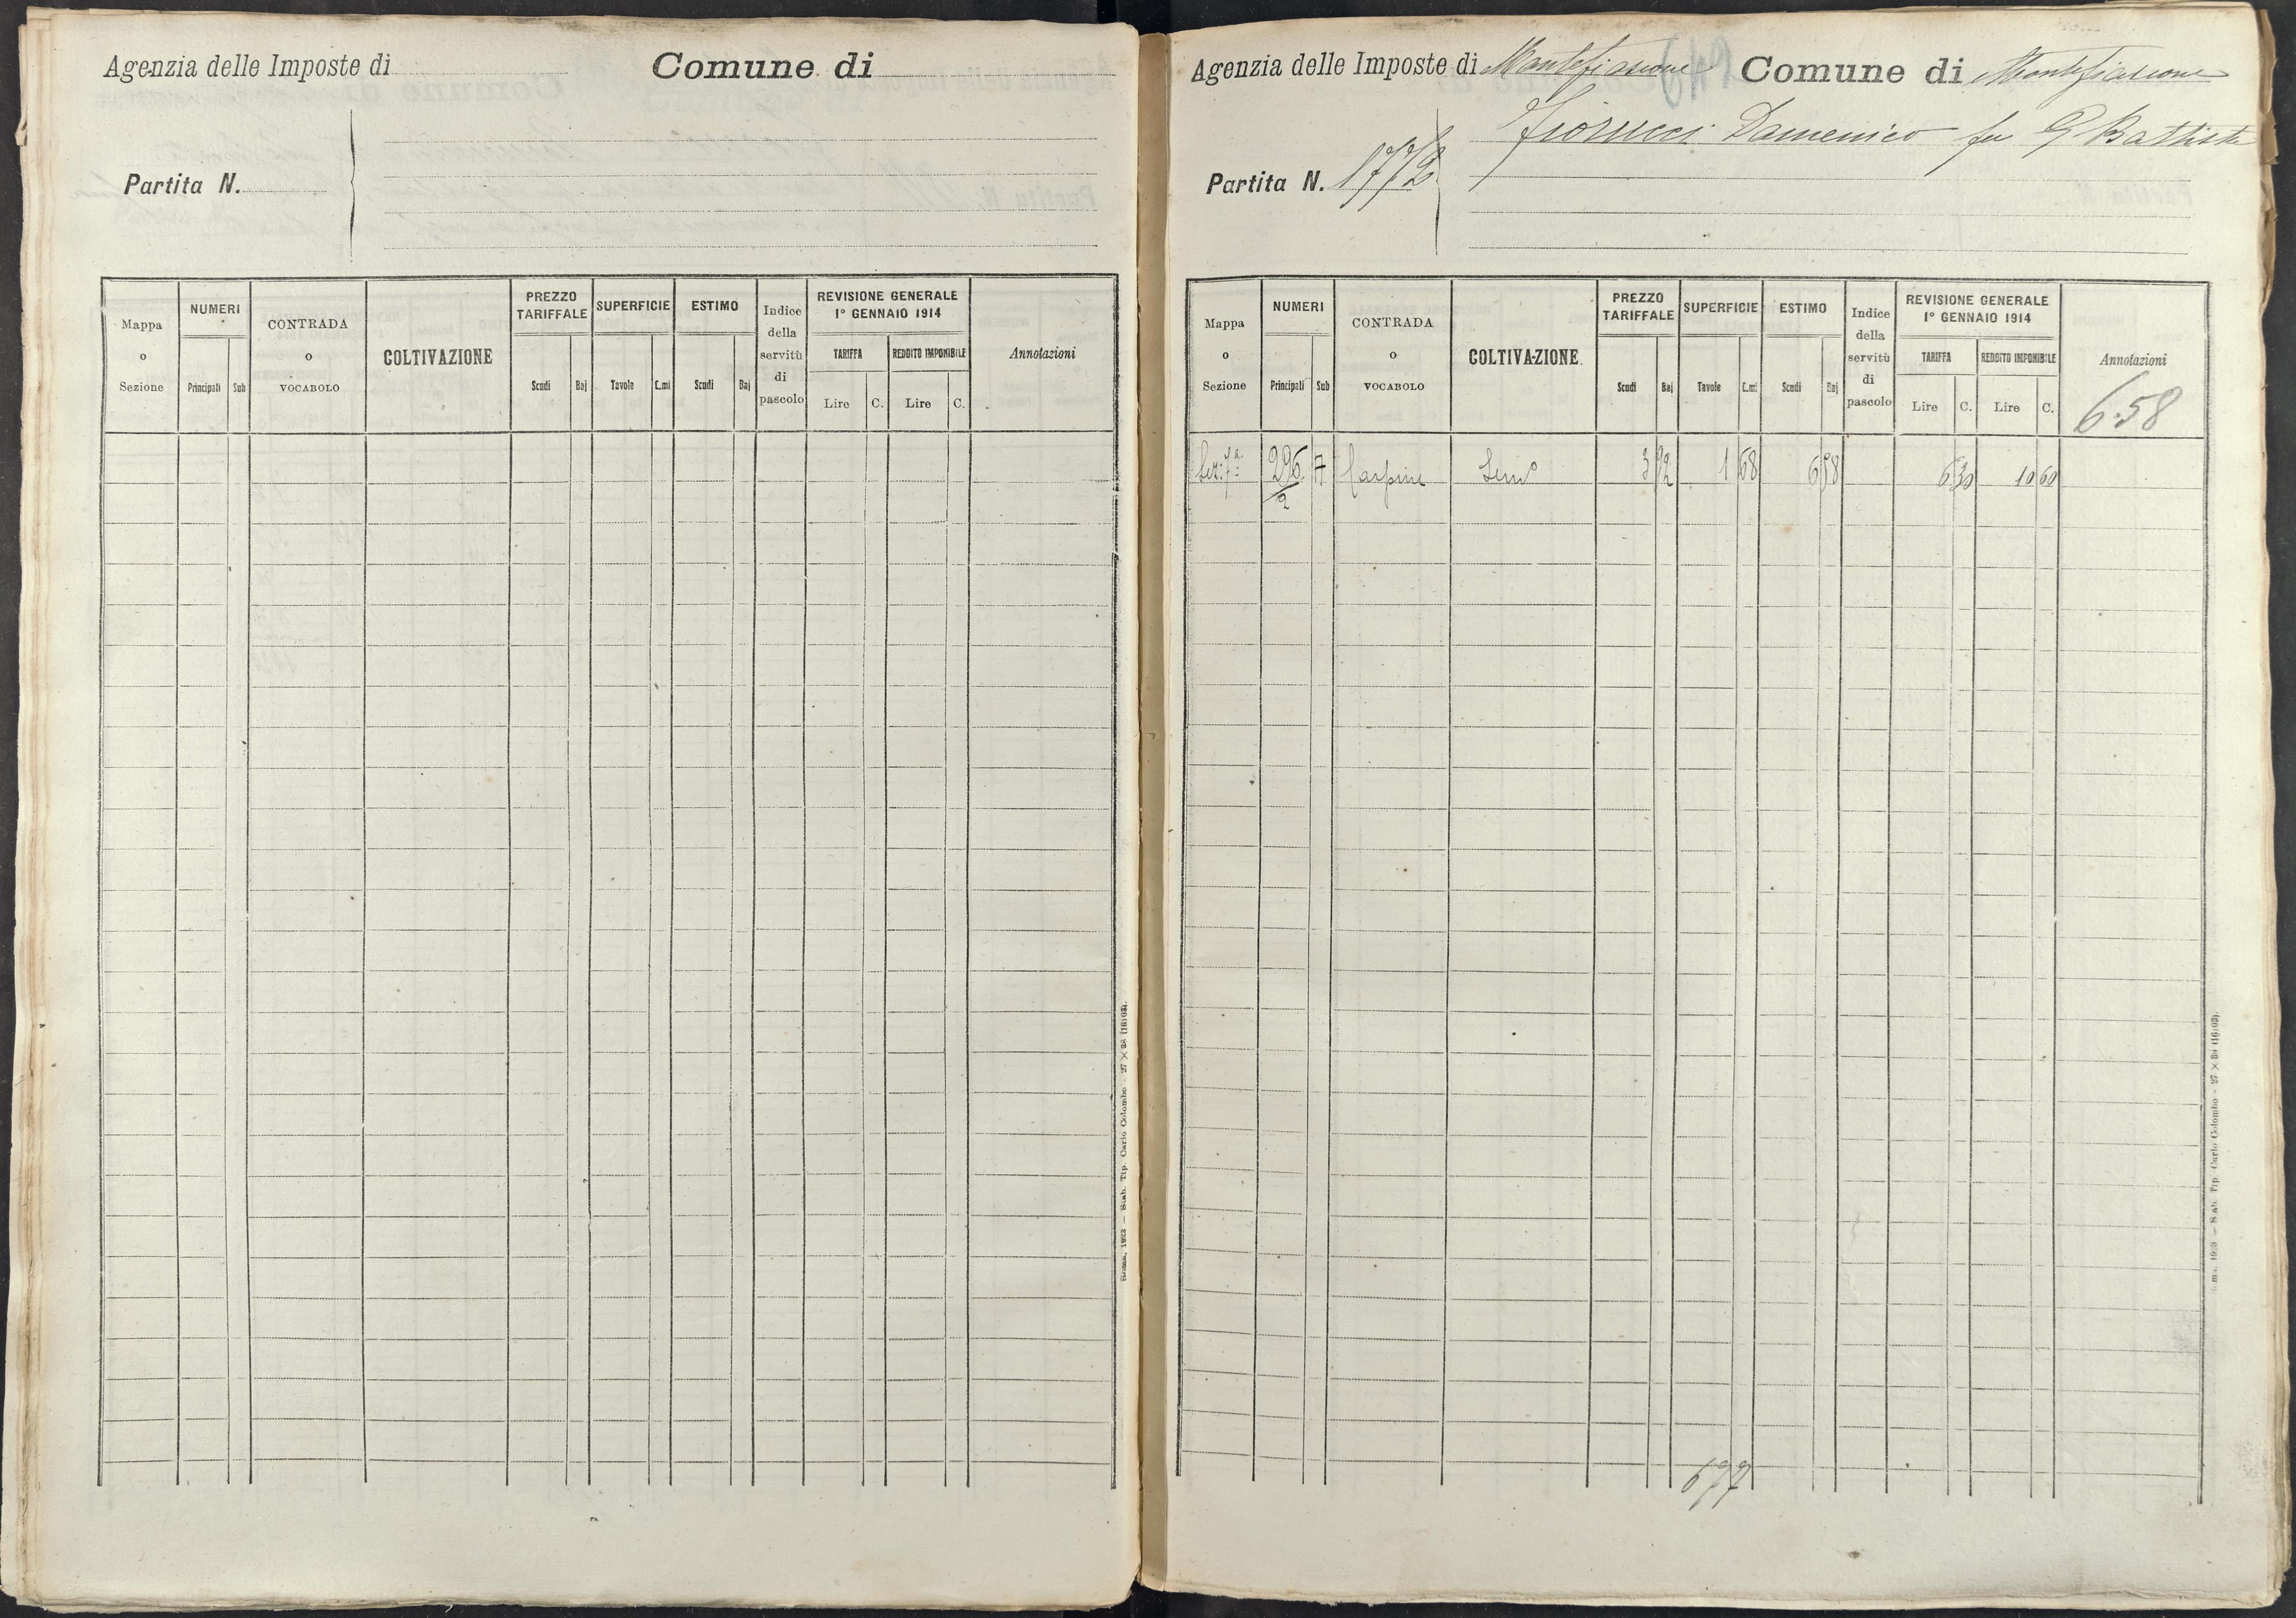 Agenzia delle Imposte di
Comune di
Partita N.
Mappa o Sezione
NUMERI
Principali
Sub
CONTRADA o VOCABOLO
COLTIVAZIONE
PREZZO TARIFFALE
Scudi
Baj
SUPERFICIE
Tavole
C.mi
ESTIMO
Scudi
Baj
Indice della servitù di pascolo
REVISIONE GENERALE
1° GENNAIO 1914
TARIFFA
Lire
C.
REDDITO IMPONIBILE
Lire
C.
Annotazioni
Roma, 1923 — Stab. Tip. Carlo Colombo - 27 × 38 (16:03).
Agenzia delle Imposte di Montefiascone
Comune di Montefiascone
Fiorucci Domenico fu G Battista
Partita N. 1772
Mappa o Sezione
NUMERI
Principali
Sub
CONTRADA o VOCABOLO
COLTIVAZIONE
PREZZO TARIFFALE
Scudi
Baj
SUPERFICIE
Tavole
C.mi
ESTIMO
Scudi
Baj
Indice della servitù di pascolo
REVISIONE GENERALE
1° GENNAIO 1914
TARIFFA
Lire
C.
REDDITO IMPONIBILE
Lire
C.
Annotazioni
6.58
Sez. 7a 296/2 Carpine Semo 3 92 1 68 6 58 6 30 10 60
677
Stab. Tip. Carlo Colombo - 27 × 38 (16:03).